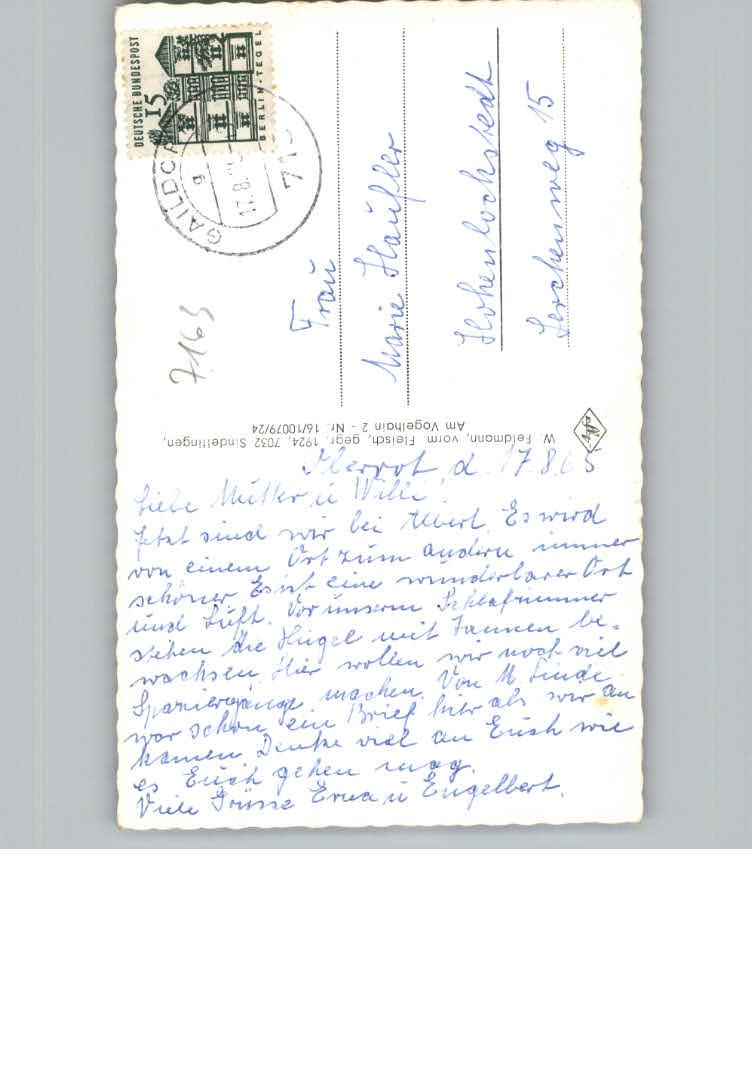 DEUTSCHE BUNDESPOST
15
BERLIN-TEGEL
GAILDO
17.8.
71
7163
Frau
Marie Häußler
Hohenlochstedt
Lerchenweg 15
W. Feldmann, vorm. Fleisch, gegr. 1924, 7032 Sindelfingen,
Am Vogelhain 2 - Nr. 16/10079/24
Oberrot, d. 17.8.65
Liebe Mutter u Willi!
Jetzt sind wir bei Albert. Es wird
von einem Ort zum andern immer
schöner. Es ist eine wunderbarer Ort
und Luft. Vor unserm Schlafzimmer
stehen die Hügel mit Tannen be-
wachsen. Hier wollen wir noch viel
Spaziergänge machen. Von M. Linde
war schon ein Brief hier als wir an
kamen. Denke viel an Euch wie
es Euch gehen mag.
Viele Grüsse Erna u Engelbert.